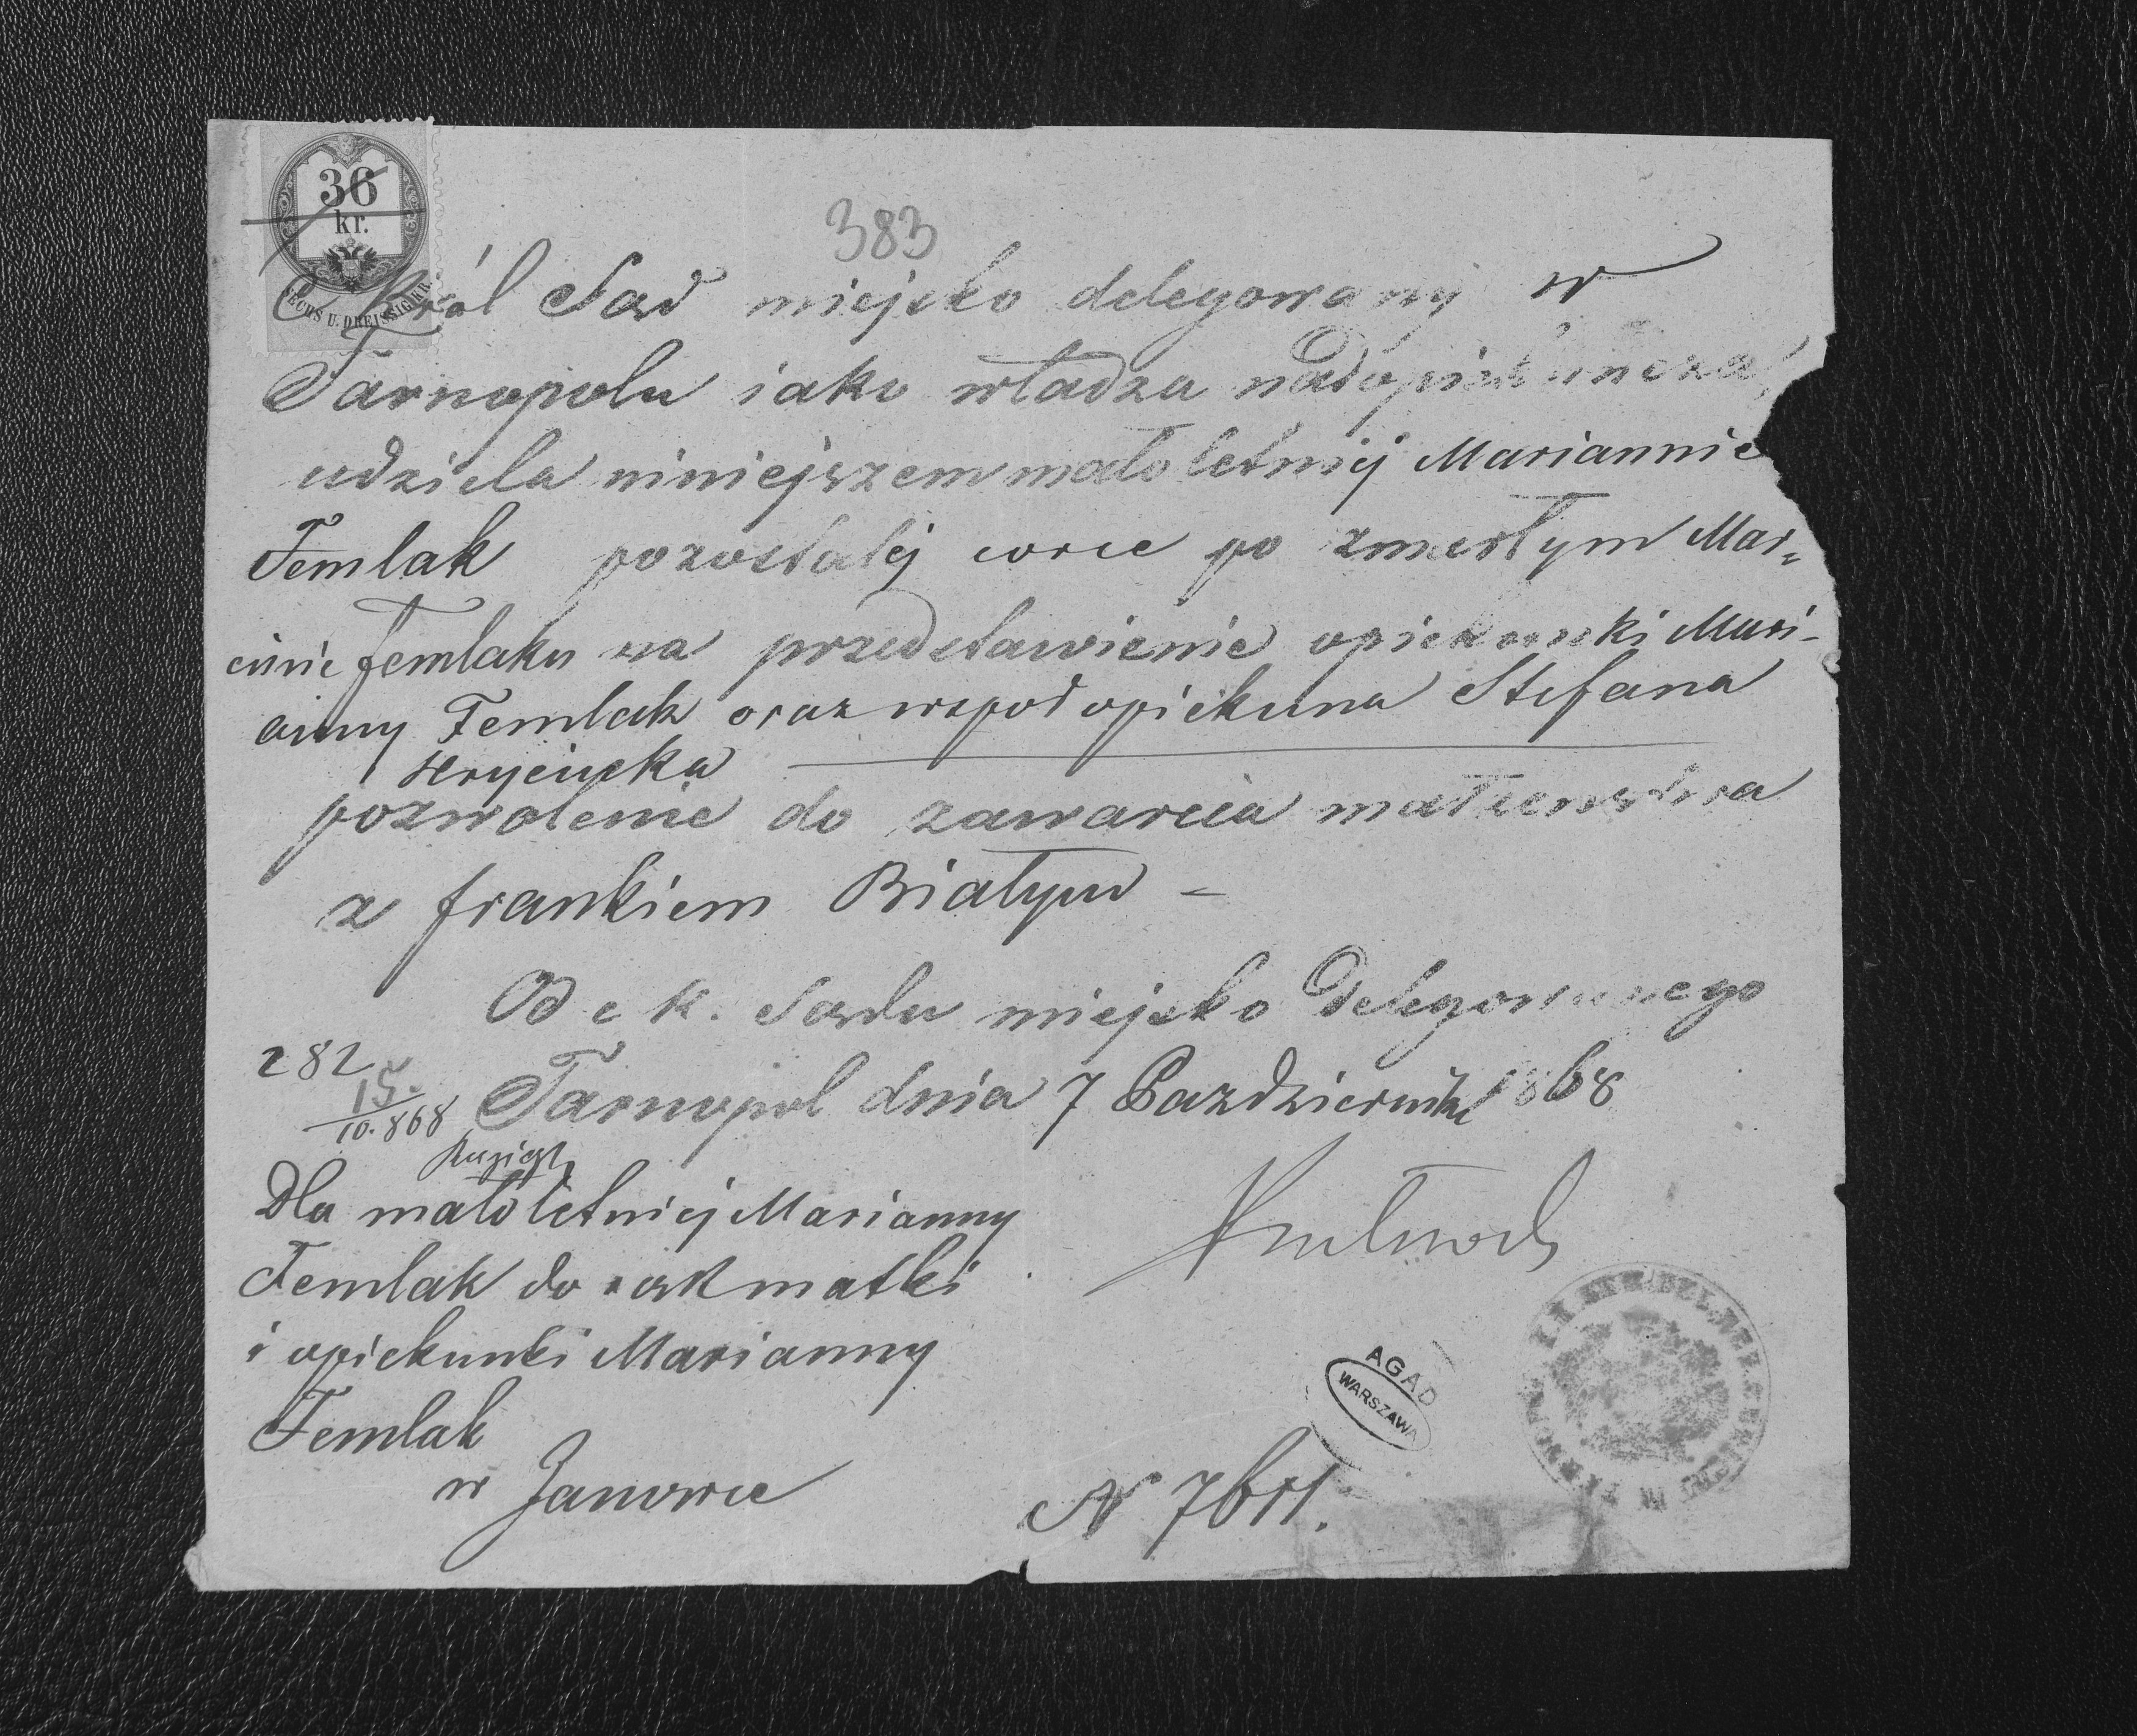 36
kr.
SECHS U. DREISSIG KR.
383
C. Król Sąd miejsko delegowany w
Tarnopolu jako władza nadopiekuńcza
udziela niniejszem małoletniej Mariannie
Temlak pozostałej corce po zmerłym Mar=
cinie Temlaku na przedstawienie opiekunki Mari-
anny Temlak oraz wspołopiekuna Stefana
Hryciuka
pozwolenie do zawarcia małżenstwa
z frankiem Białym -
Od c k. Sądu miejsko Delegowanego
282
15.
10. 868
Tarnopol dnia 7 Pazdziernika 1868
Dla małoletniej Marianny
Temlak do rąk matki
i opiekunki Marianny
Temlak
w Janowie
AGAD
WARSZAWA
N 7611.